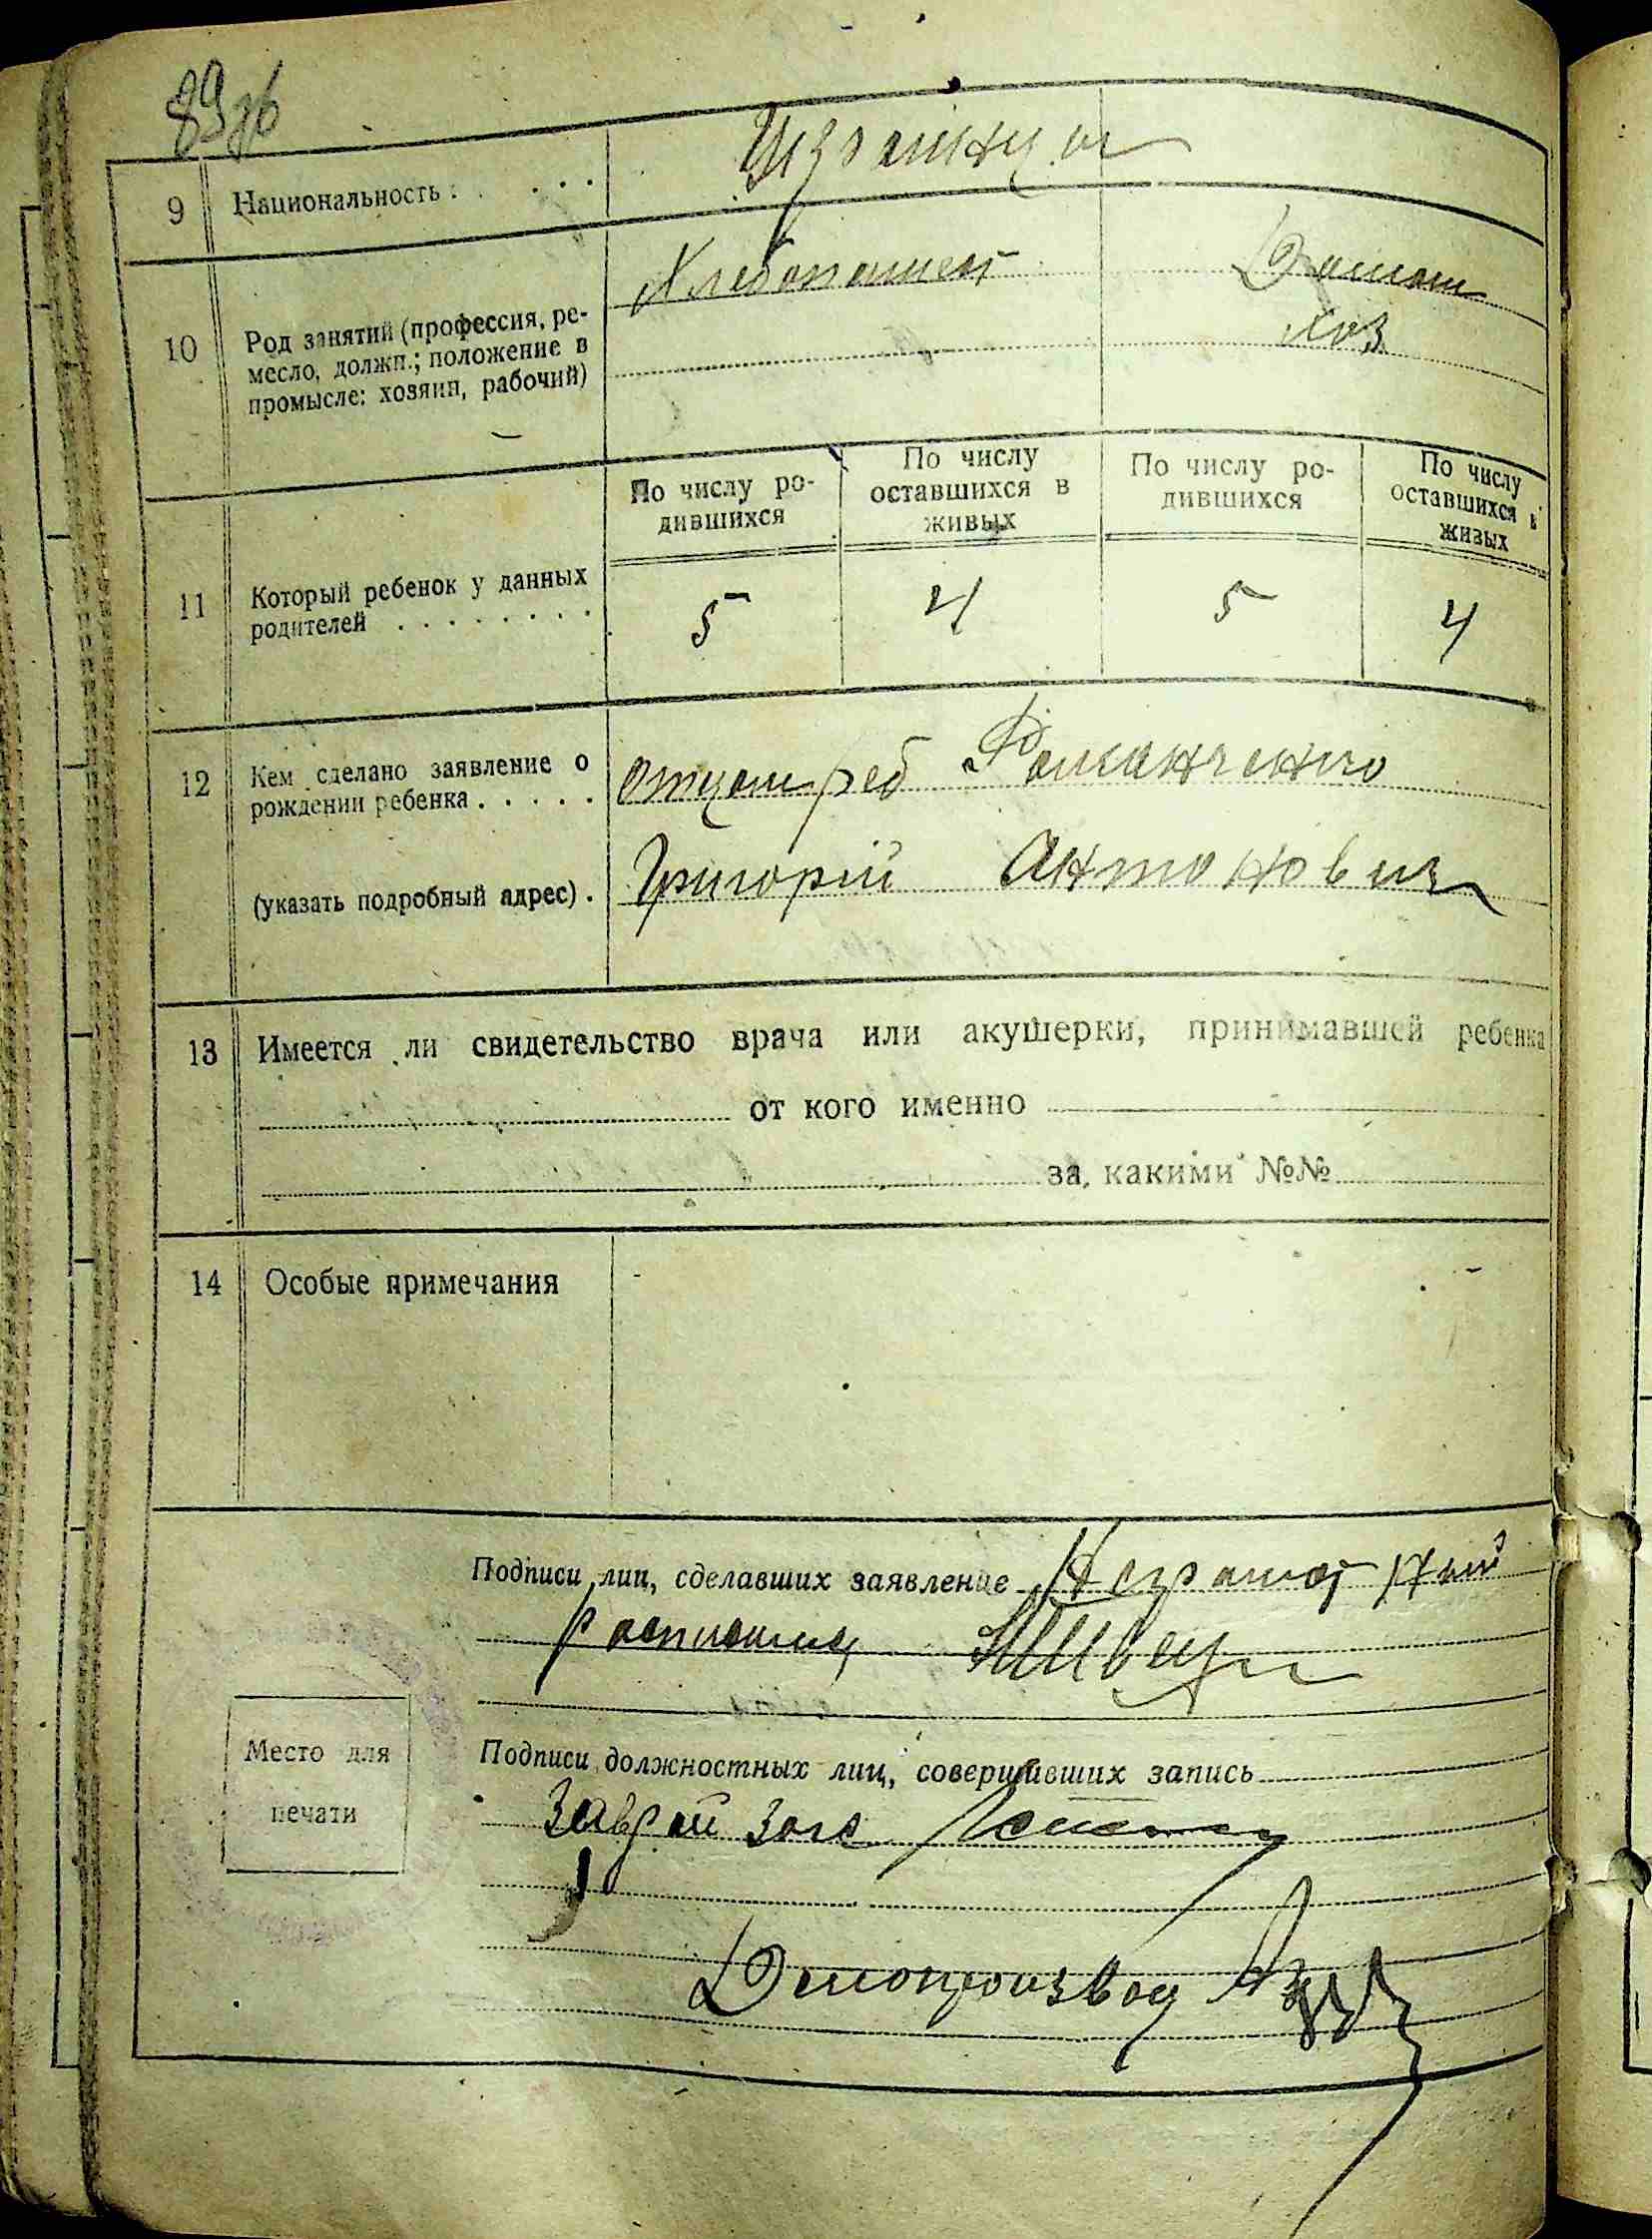 89 зв
9 Национальность: . . . . Украинцы
10 Род занятий (профессия, ре-
месло, должн.; положение в
промысле: хозяин, рабочий)
Хлебопашест Домаш
хоз
По числу ро-
дившихся
По числу
оставшихся в
живых
По числу ро-
дившихся
По числу
оставшихся в
живых
11 Который ребенок у данных
родителей . . . . . . . .
5 4 5 4
12 Кем сделано заявление о
рождении ребенка . . . . .
отцом реб Романченко
(указать подробный адрес) . Григорій Антонович
13 Имеется ли свидетельство врача или акушерки, принимавшей ребенка
от кого именно
за какими №№
14 Особые примечания
Подписи лиц, сделавших заявление Неграмот
Швец
Место для
печати
Подписи должностных лиц, совершивших запись
Заврай Загс
Делопроизвод